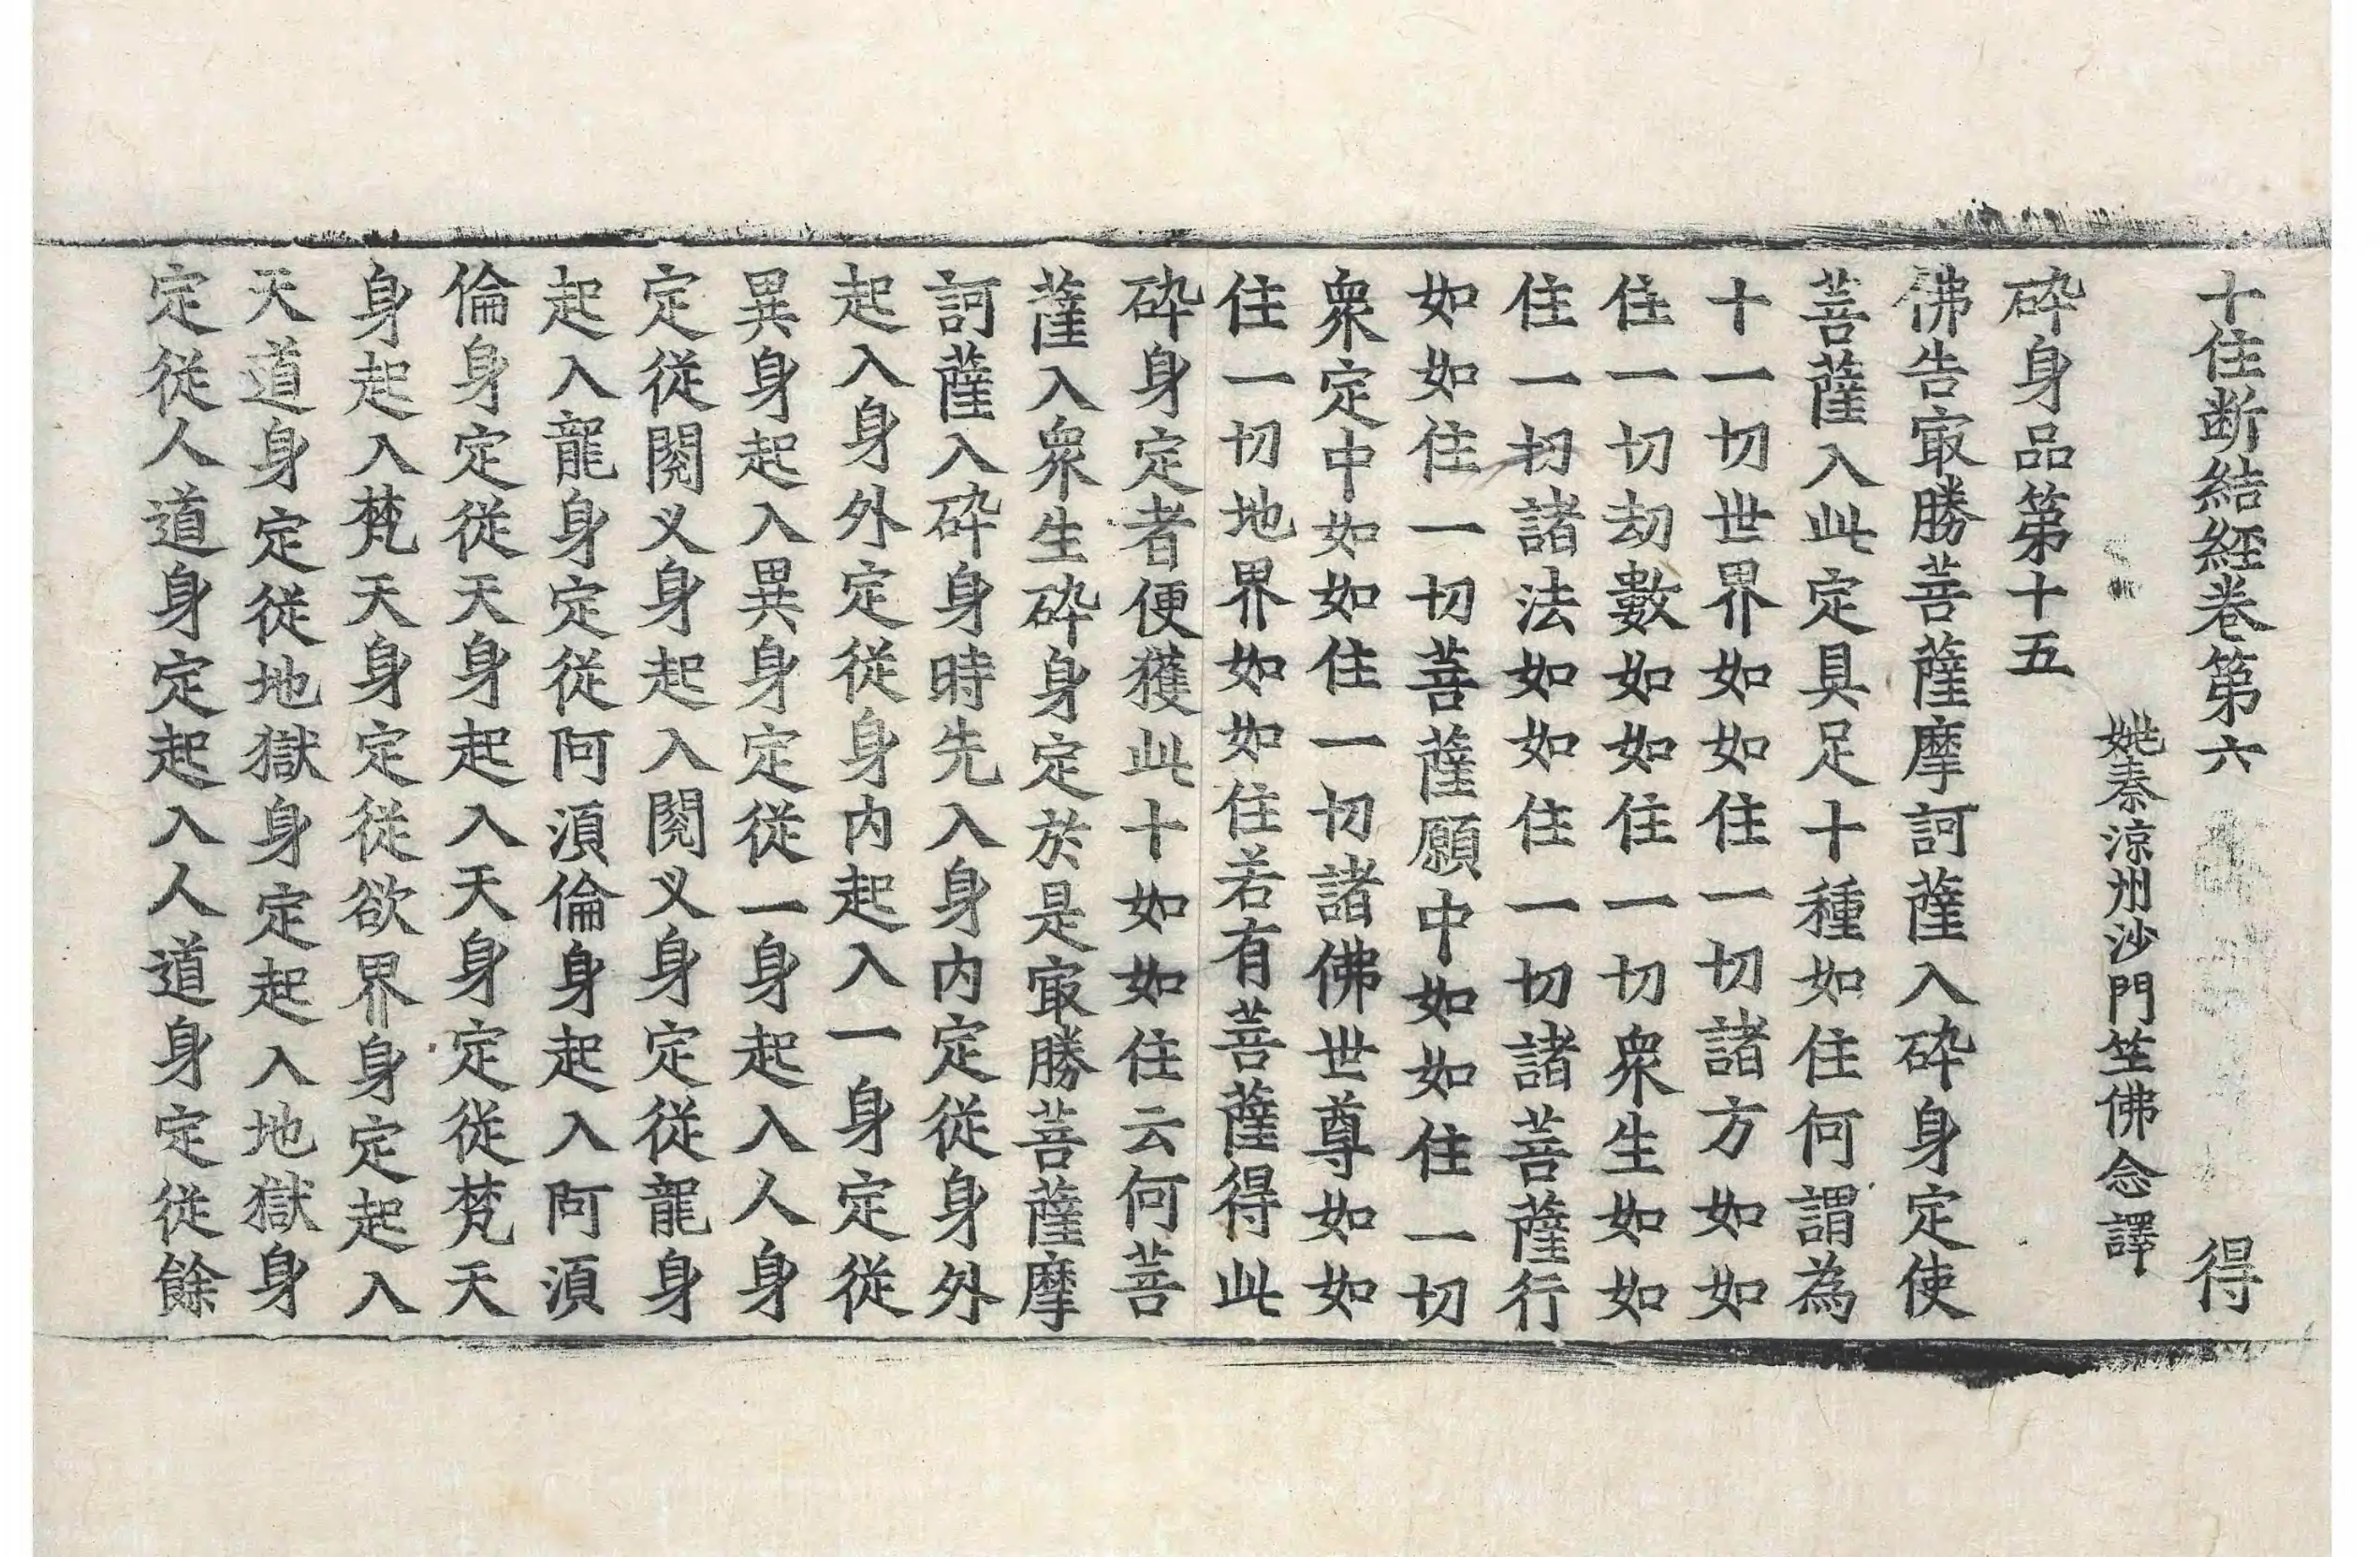 十住断結経卷第六 得
姚秦涼州沙門竺佛念譯
碎身品第十五
佛告㝡勝菩薩摩訶薩入碎身定使
菩薩入此定具足十種如住何謂為
十一切世界如如住一切諸方如如
住一切劫數如如住一切衆生如如
住一切諸法如如住一切諸菩薩行
如如住一切菩薩願中如如住一切
衆定中如如住一切諸佛世尊如如
住一切地界如如住若有菩薩得此
碎身定者便獲此十如如住云何菩
薩入衆生碎身定於是㝡勝菩薩摩
訶薩入碎身時先入身内定從身外
起入身外定從身内起入一身定從
異身起入異身定從一身起入人身
定從閱叉身起入閱叉身定從龍身
起入龍身定從阿湏倫身起入阿湏
倫身定從天身起入天身定從梵天
身起入梵天身定從欲界身定起入
天道身定從地獄身定起入地獄身
定從人道身定起入人道身定從餘